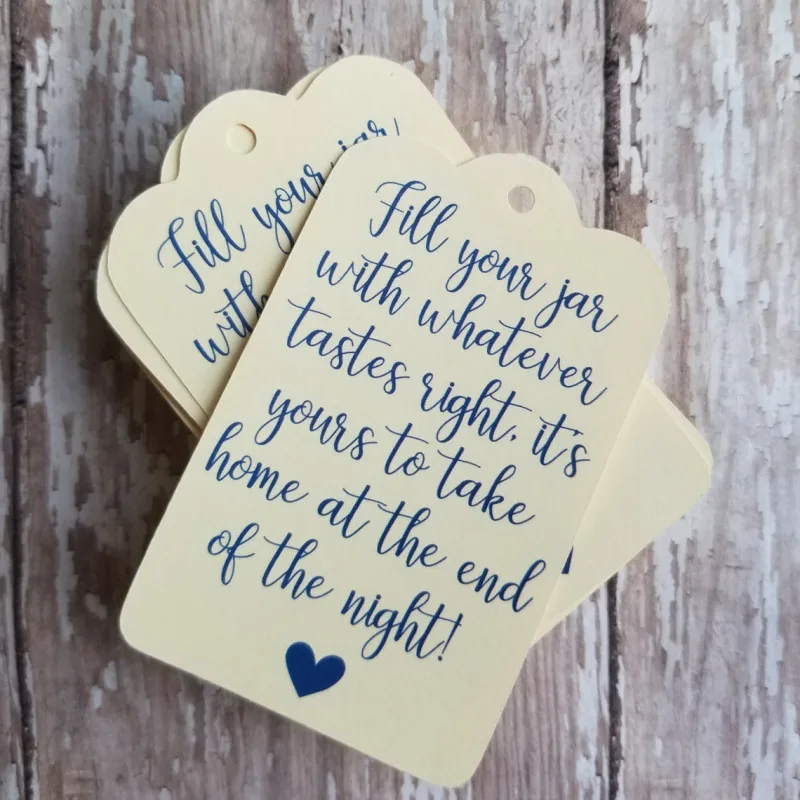 Fill your jar
with whatever
tastes right, it's
yours to take
home at the end
of the night!
Fill your jar
with